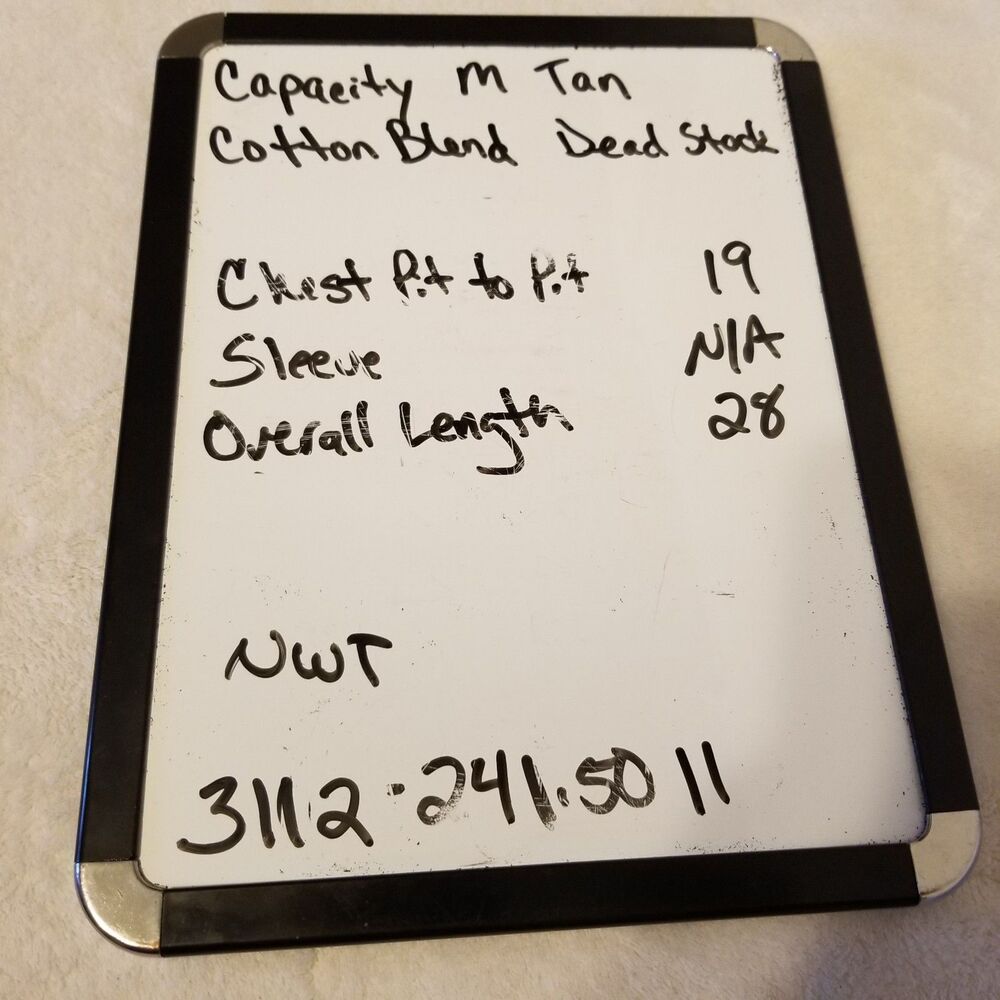 Capacity M Tan
Cotton Blend Dead Stock
Chest Pit to Pit 19
Sleeve N/A
Overall Length 28
NWT
3112-241.50 11